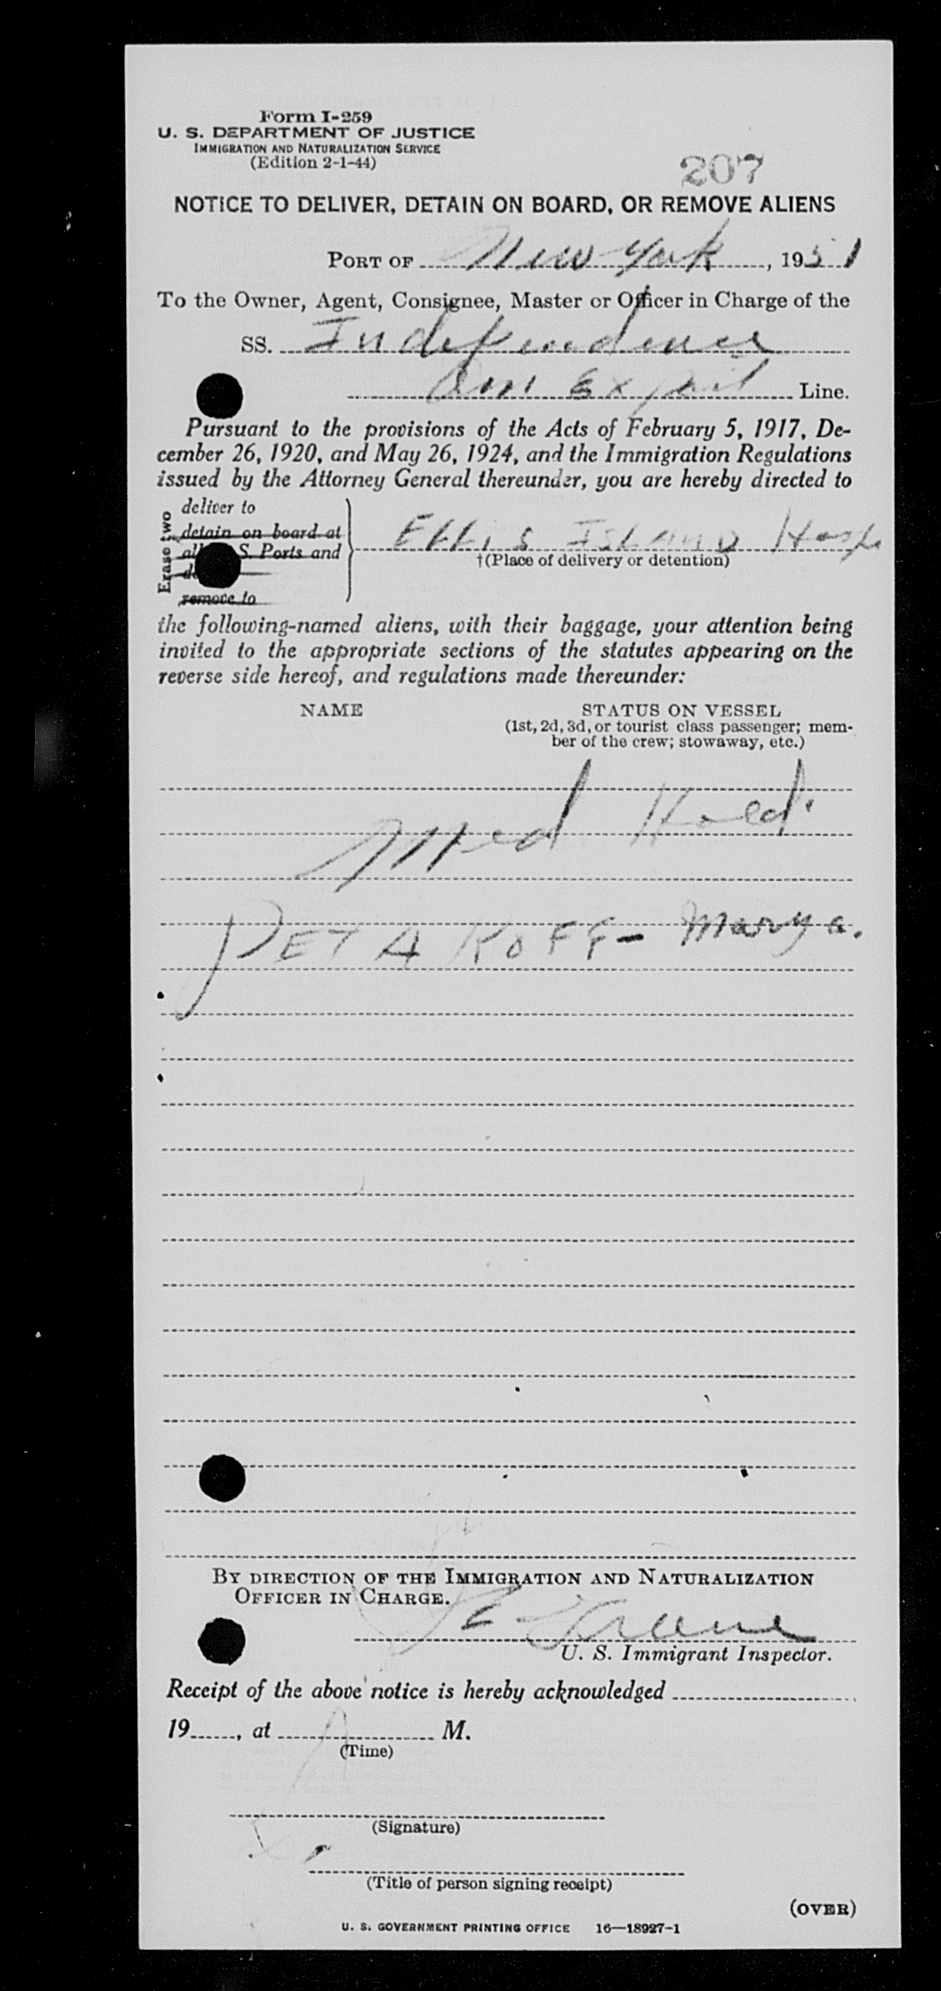 Form I-259
U. S. DEPARTMENT OF JUSTICE
IMMIGRATION AND NATURALIZATION SERVICE
(Edition 2-1-44)
207
NOTICE TO DELIVER, DETAIN ON BOARD, OR REMOVE ALIENS
PORT OF New York, 1951
To the Owner, Agent, Consignee, Master or Officer in Charge of the
SS. Independence
Am Export Line.
Pursuant to the provisions of the Acts of February 5, 1917, De-
cember 26, 1920, and May 26, 1924, and the Immigration Regulations
issued by the Attorney General thereunder, you are hereby directed to
Erase two
deliver to
detain on board at
S. Ports and
remove to
Ellis Island Hosp
†(Place of delivery or detention)
the following-named aliens, with their baggage, your attention being
invited to the appropriate sections of the statutes appearing on the
reverse side hereof, and regulations made thereunder:
NAME
STATUS ON VESSEL
(1st, 2d, 3d, or tourist class passenger; mem-
ber of the crew; stowaway, etc.)
Med Held.
PETAKOFF - Marya.
BY DIRECTION OF THE IMMIGRATION AND NATURALIZATION
OFFICER IN CHARGE.
U. S. Immigrant Inspector.
Receipt of the above notice is hereby acknowledged
19, at M.
(Time)
(Signature)
(Title of person signing receipt)
(OVER)
U. S. GOVERNMENT PRINTING OFFICE 16—18927-1